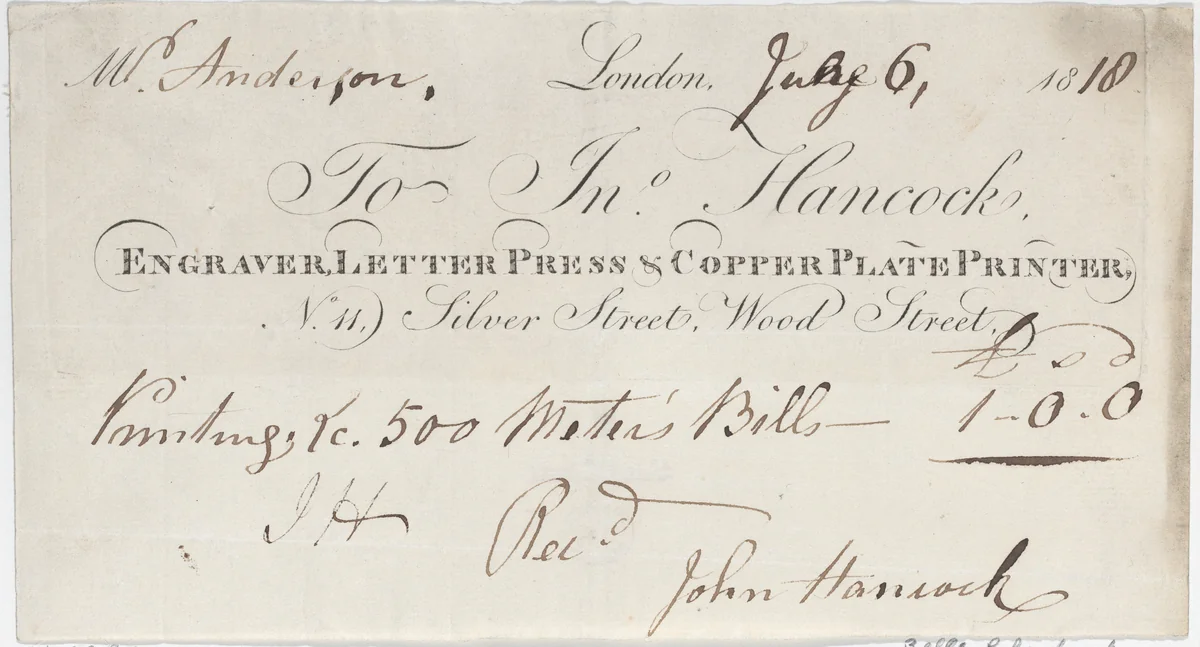 Mr. Anderson, London, July 6, 1818
To Jno. Hancock,
ENGRAVER, LETTER PRESS & COPPER PLATE PRINTER,
No. 11, Silver Street, Wood Street,
£ s d
Printing, &c. 500 Meter's Bills — 1-0-0
JH Recd
John Hancock